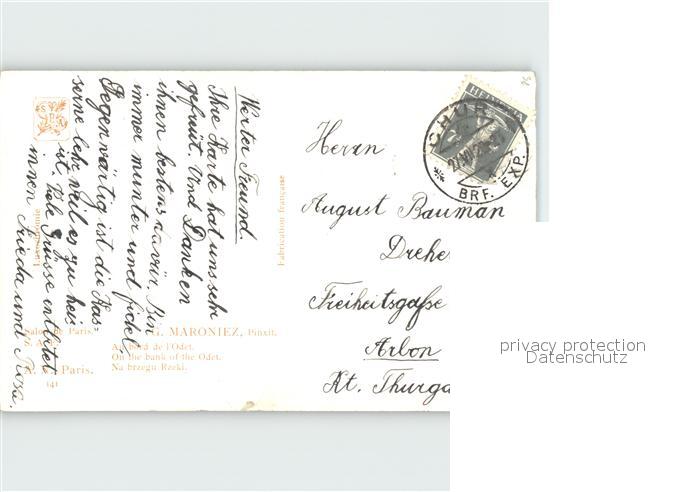 Werter Freund.
Ihre Karte hat uns sehr
gefreut. Und Danken
ihnen bestens davür, Bin
immer munter und fidel,
Gegenwärtig ist die Kas
serne lehr weil es zu heis
ist. Viele Grüsse entbietet
innen Frieda und Rosa.
Salon de Paris.
S. A.
A. N. Paris.
141
G. MARONIEZ, Pinxit.
Au bord de l'Odet.
On the bank of the Odet.
Na brzegu Rzeki.
Fabrication française
HELVETIA
CHUR
BRF. EXP.
Herrn
August Bauman
Dreher
Freiheitsgasse
Arbon
Kt. Thurga
privacy protection
Datenschutz